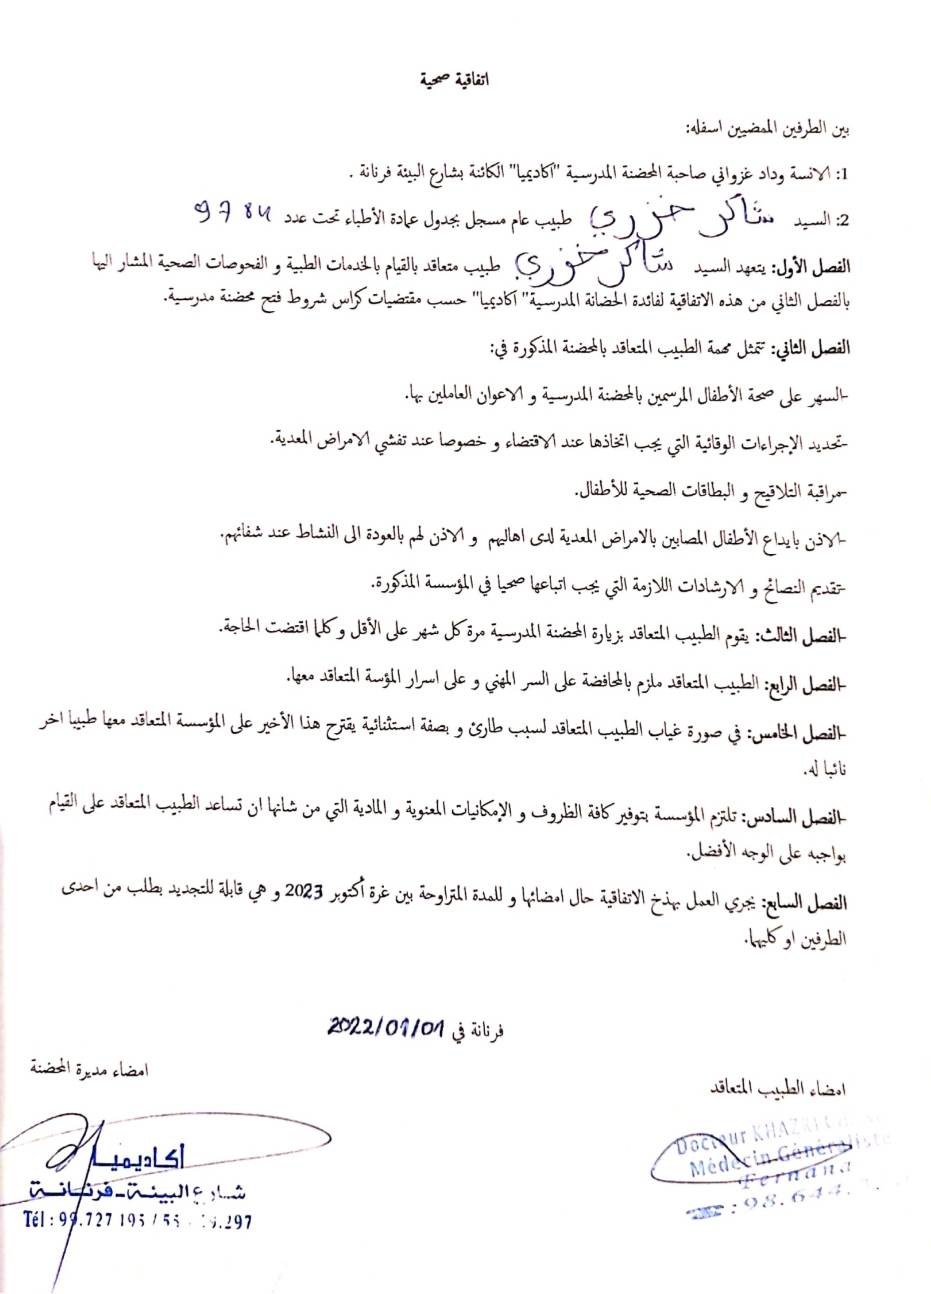 اتفاقية صحية
بين الطرفين الممضيين اسفله:
1: الانسة وداد غزواني صاحبة المحضنة المدرسية "اكاديميا" الكائنة بشارع البيئة فرنانة .
2: السيد شاكر خزري طبيب عام مسجل بجدول عمادة الأطباء تحت عدد
الفصل الأول: يتعهد السيد شاكر خزري طبيب متعاقد بالقيام بالخدمات الطبية و الفحوصات الصحية المشار اليها
بالفصل الثاني من هذه الاتفاقية لفائدة الحضانة المدرسية" اكاديميا" حسب مقتضيات كراس شروط فتح محضنة مدرسية.
الفصل الثاني: تتمثل مهمة الطبيب المتعاقد بالمحضنة المذكورة في:
-السهر على صحة الأطفال المرسمين بالمحضنة المدرسية و الاعوان العاملين بها.
-تحديد الإجراءات الوقائية التي يجب اتخاذها عند الاقتضاء و خصوصا عند تفشي الامراض المعدية.
-مراقبة التلاقيح و البطاقات الصحية للأطفال.
-الاذن بايداع الأطفال المصابين بالامراض المعدية لدى اهاليهم و الاذن لهم بالعودة الى النشاط عند شفائهم.
-تقديم النصائح و الارشادات اللازمة التي يجب اتباعها صحيا في المؤسسة المذكورة.
-الفصل الثالث: يقوم الطبيب المتعاقد بزيارة المحضنة المدرسية مرة كل شهر على الأقل و كلما اقتضت الحاجة.
-الفصل الرابع: الطبيب المتعاقد ملزم بالمحافضة على السر المهني و على اسرار المؤسة المتعاقد معها.
-الفصل الخامس: في صورة غياب الطبيب المتعاقد لسبب طارئ و بصفة استثنائية يقترح هذا الأخير على المؤسسة المتعاقد معها طبيبا اخر
نائبا له.
-الفصل السادس: تلتزم المؤسسة بتوفير كافة الظروف و الإمكانيات المعنوية و المادية التي من شانها ان تساعد الطبيب المتعاقد على القيام
بواجبه على الوجه الأفضل.
الفصل السابع: يجري العمل بهذخ الاتفاقية حال امضائها و للمدة المتراوحة بين غرة أكتوبر 2023 و هي قابلة للتجديد بطلب من احدى
الطرفين او كليهما.
فرنانة في 2022/01/01
امضاء الطبيب المتعاقد
امضاء مديرة المحضنة
Docteur KHAZRI
Médecin Généraliste
Fernana
: 98.644.
أكاديميا
شارع البيئة-فرنانة
Tél : 99.727 195 / 55 .297